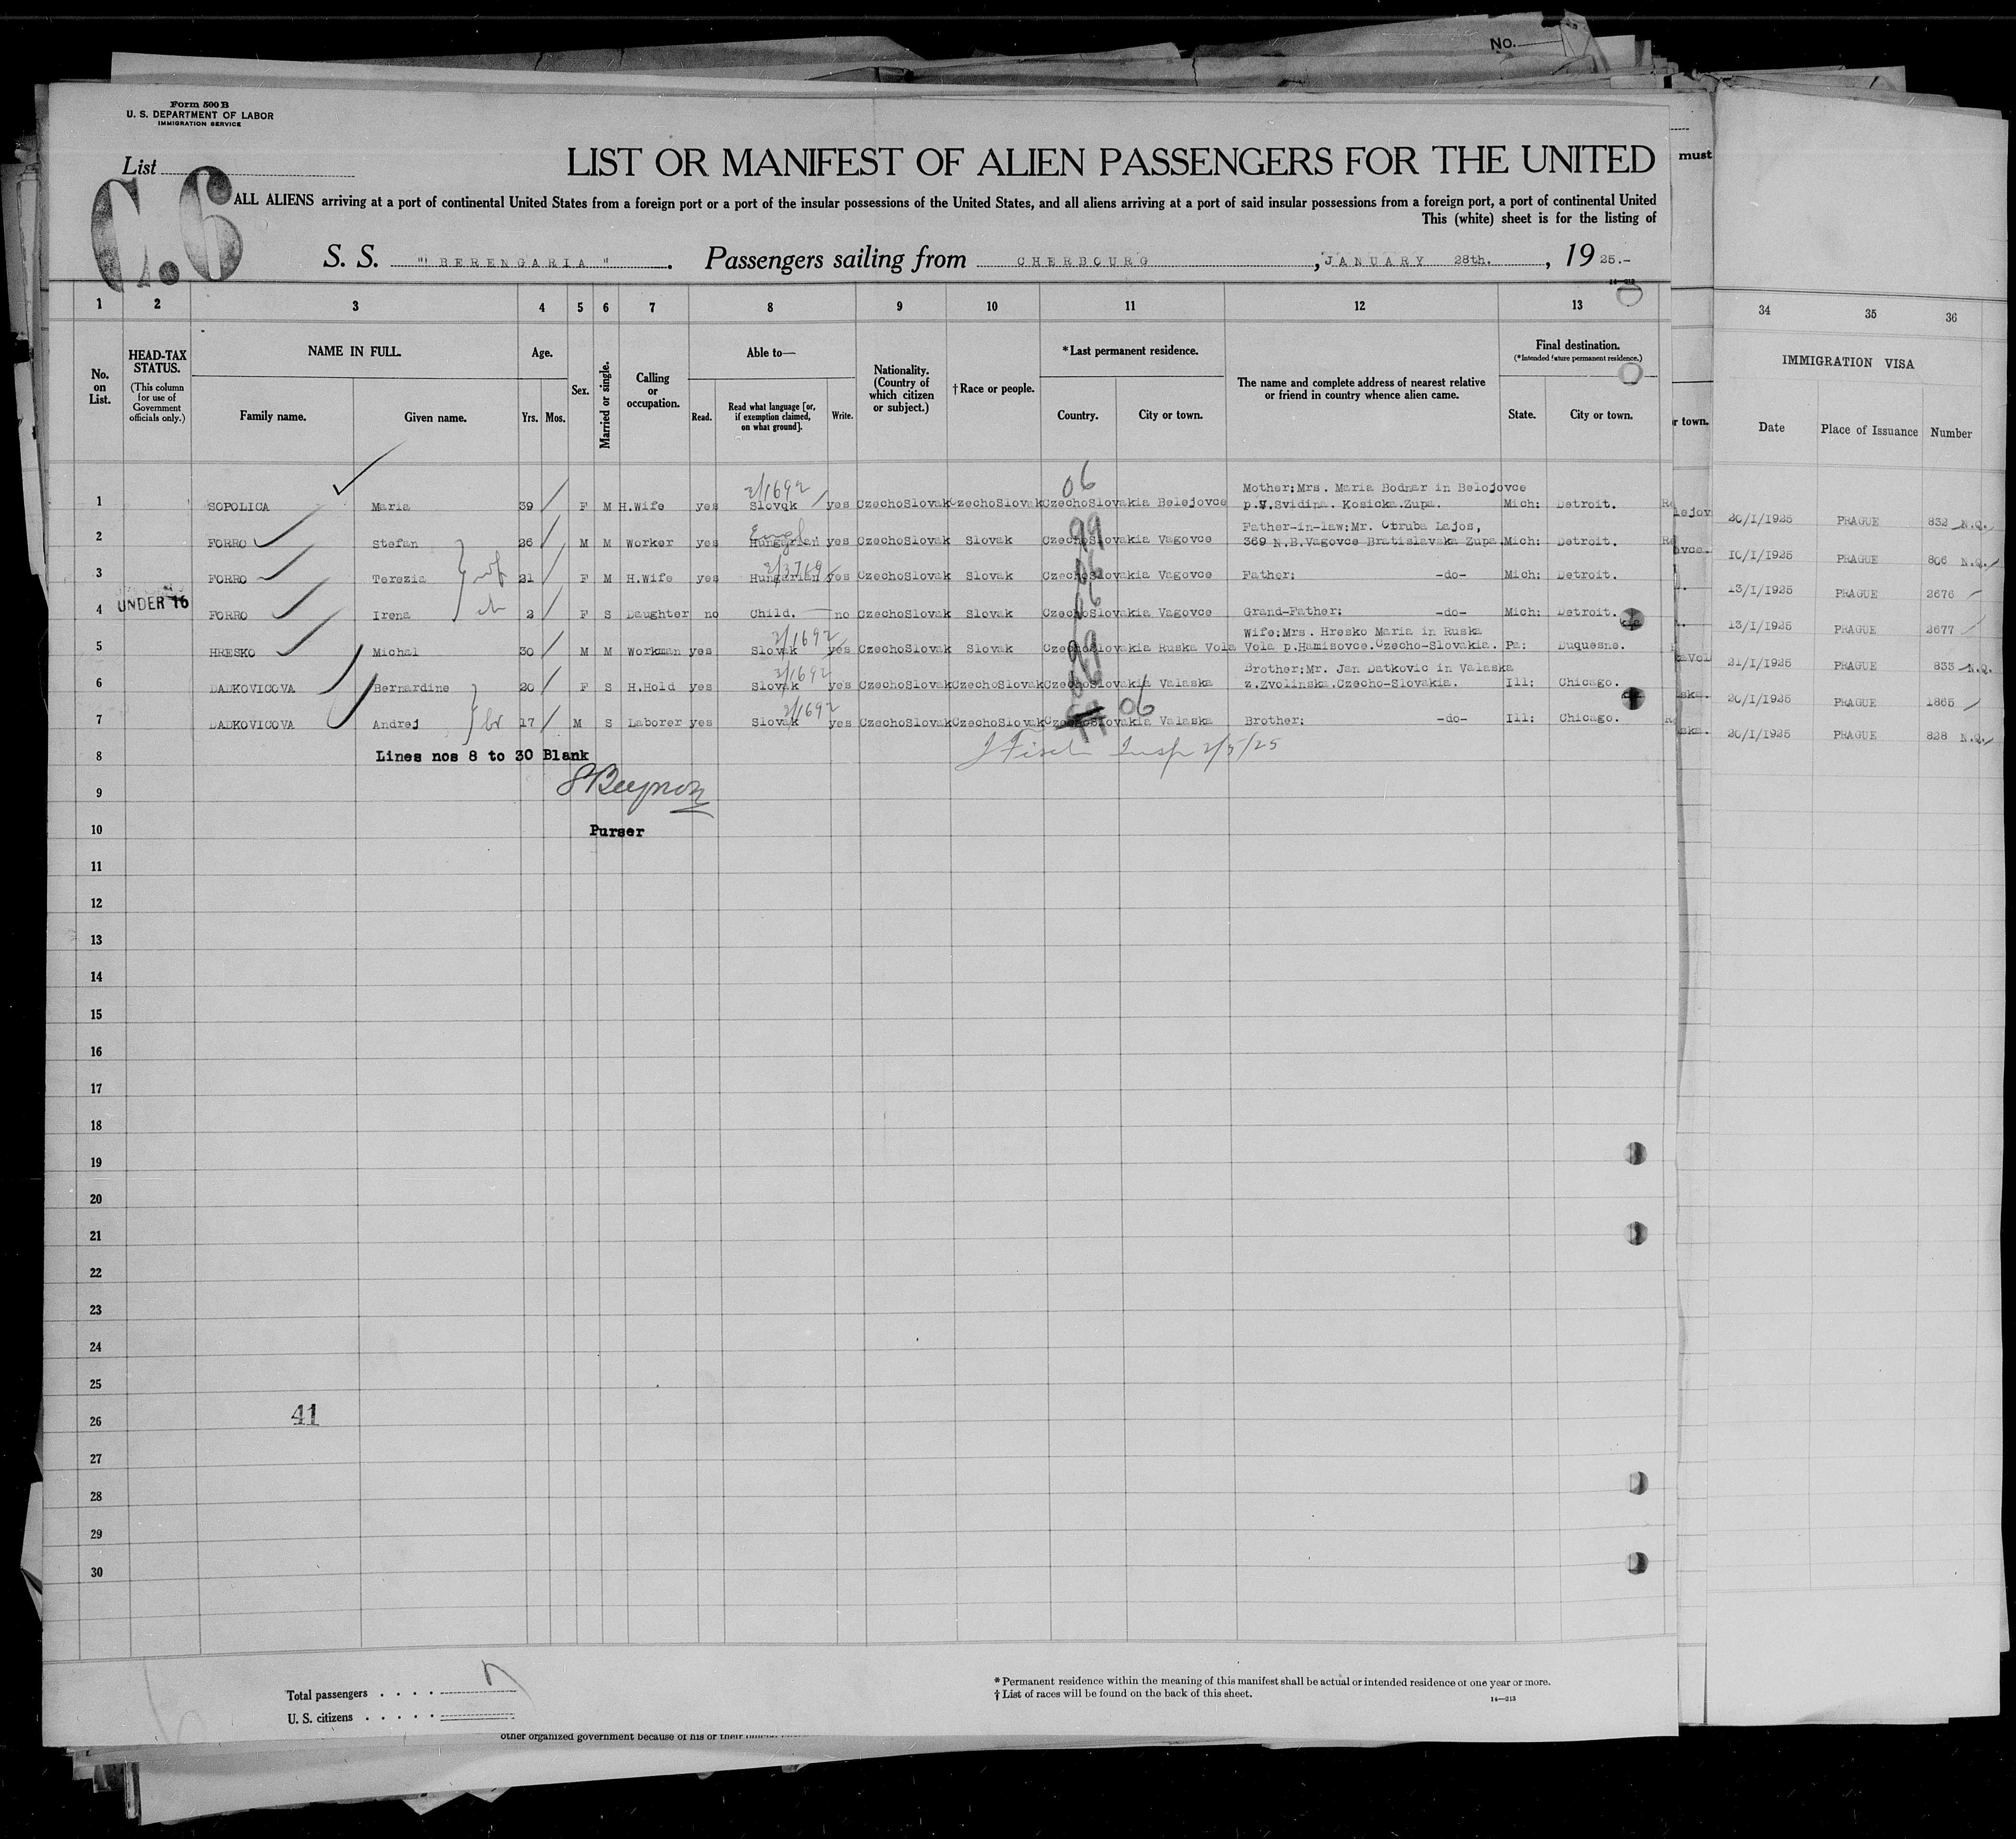 No.
Form 500 B
U. S. DEPARTMENT OF LABOR
IMMIGRATION SERVICE
List
C.6
LIST OR MANIFEST OF ALIEN PASSENGERS FOR THE UNITED
must
ALL ALIENS arriving at a port of continental United States from a foreign port or a port of the insular possessions of the United States, and all aliens arriving at a port of said insular possessions from a foreign port, a port of continental United
This (white) sheet is for the listing of
S. S. "BERENGARIA". Passengers sailing from CHERBOURG, JANUARY 28th., 19 25.-
14—213
1 2 3 4 5 6 7 8 9 10 11 12 13 34 35 36
No. on List.
HEAD-TAX STATUS.
(This column for use of Government officials only.)
NAME IN FULL.
Family name. Given name.
Age.
Yrs. Mos.
Sex.
Married or single.
Calling or occupation.
Able to—
Read. Read what language [or, if exemption claimed, on what ground]. Write.
Nationality. (Country of which citizen or subject.)
† Race or people.
* Last permanent residence.
Country. City or town.
The name and complete address of nearest relative or friend in country whence alien came.
Final destination.
(* Intended future permanent residence.)
State. City or town.
r town.
IMMIGRATION VISA
Date Place of Issuance Number
2/1692 06 Mother:Mrs. Maria Bodnar in Belojovce
1 SOPOLICA Maria 39 F M H.Wife yes Slovak yes CzechoSlovak CzechoSlovak CzechoSlovakia Belejovce p.V.Svidina. Kosicka.Zupa. Mich: Detroit. lejov 20/1/1925 PRAGUE 832 N.Q.
Engl 99 Father-in-law:Mr. Otruba Lajos,
2 FORRO Stefan 26 M M Worker yes Hungarian yes CzechoSlovak Slovak CzechoSlovakia Vagovce 369 N.B.Vagovce Bratislavska Zupa. Mich: Detroit. ovce. 10/1/1925 PRAGUE 806 N.Q.
2/3769 06
3 FORRO Terezia wf 21 F M H.Wife yes Hungarian yes CzechoSlovak Slovak CzechoSlovakia Vagovce Father: -do- Mich: Detroit. 13/1/1925 PRAGUE 2676
UNDER 16
4 FORRO Irena ch 2 F S Daughter no Child. no CzechoSlovak Slovak CzechoSlovakia Vagovce Grand-Father: -do- Mich: Detroit. 13/1/1925 PRAGUE 2677
2/1692 99 Wife:Mrs. Hresko Maria in Ruska
5 HRESKO Michal 30 M M Workman yes Slovak yes CzechoSlovak Slovak CzechoSlovakia Ruska Vola Vola p.Hamisovce.Czecho-Slovakia. Pa: Duquesne. aVol 21/1/1925 PRAGUE 833 N.Q.
2/1692 Brother:Mr. Jan Datkovic in Valaska
6 DADKOVICOVA Bernardine 20 F S H.Hold yes Slovak yes CzechoSlovak CzechoSlovak CzechoSlovakia Valaska z.Zvolinska.Czecho-Slovakia. Ill: Chicago. ska. 20/1/1925 PRAGUE 1865
2/1692 06
7 DADKOVICOVA Andrej br 17 M S Laborer yes Slovak yes CzechoSlovak CzechoSlovak CzechoSlovakia Valaska Brother: -do- Ill: Chicago. ska. 20/1/1925 PRAGUE 828 N.Q.
8 Lines nos 8 to 30 Blank Insp 2/5/25
9
10 Purser
11
12
13
14
15
16
17
18
19
20
21
22
23
24
25
26 41
27
28
29
30
Total passengers . . . .
U. S. citizens . . . . .
* Permanent residence within the meaning of this manifest shall be actual or intended residence of one year or more.
† List of races will be found on the back of this sheet.
14—213
other organized government because of his or their